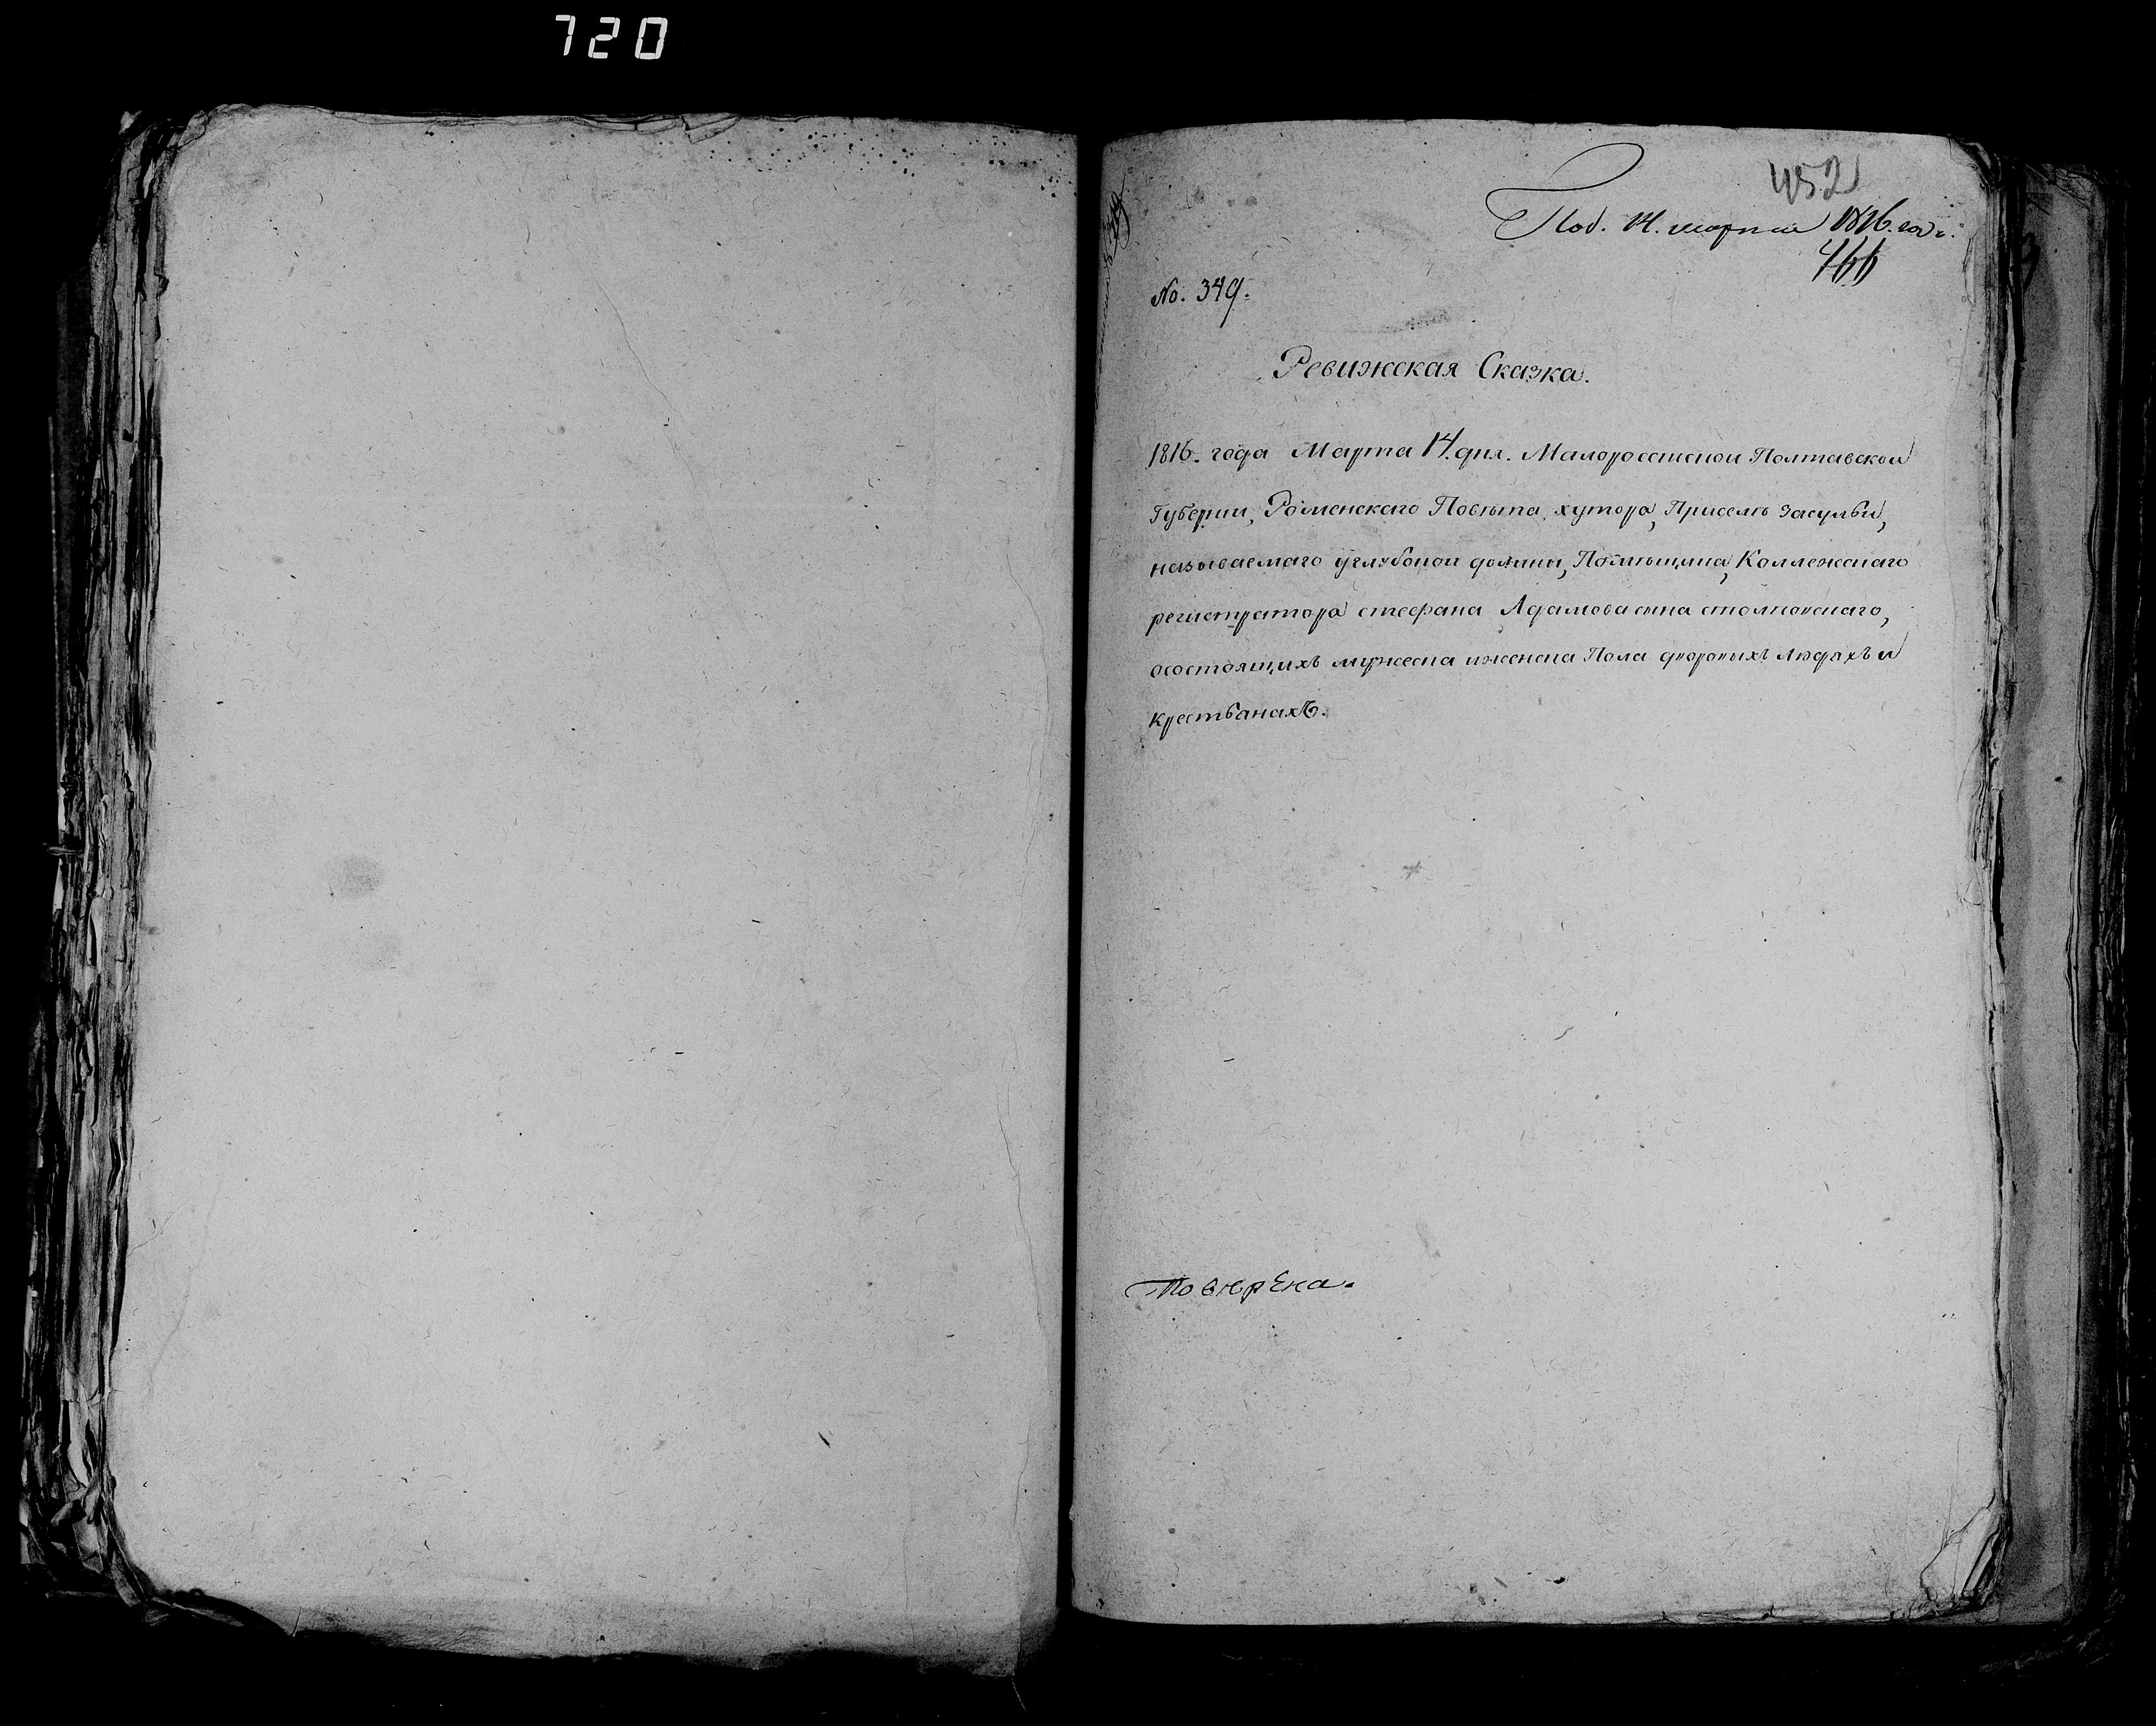 720
452
Под. 14. марта 1816. года:
466
No. 349.
Ревижская Сказка.
1816. года Марта 14. дня. Малоросийской Полтавской
Губернии, Роменского Повѣта, хутора, Приселѣ Засульи,
называемаго углубокой долины, Помѣщика, Коллежскаго
регистратора стефана Адамова сына столповскаго,
осостоящихъ мужеска иженска Пола дворовыхъ людяхъ и
крестьянахъ.
Повѣрена.